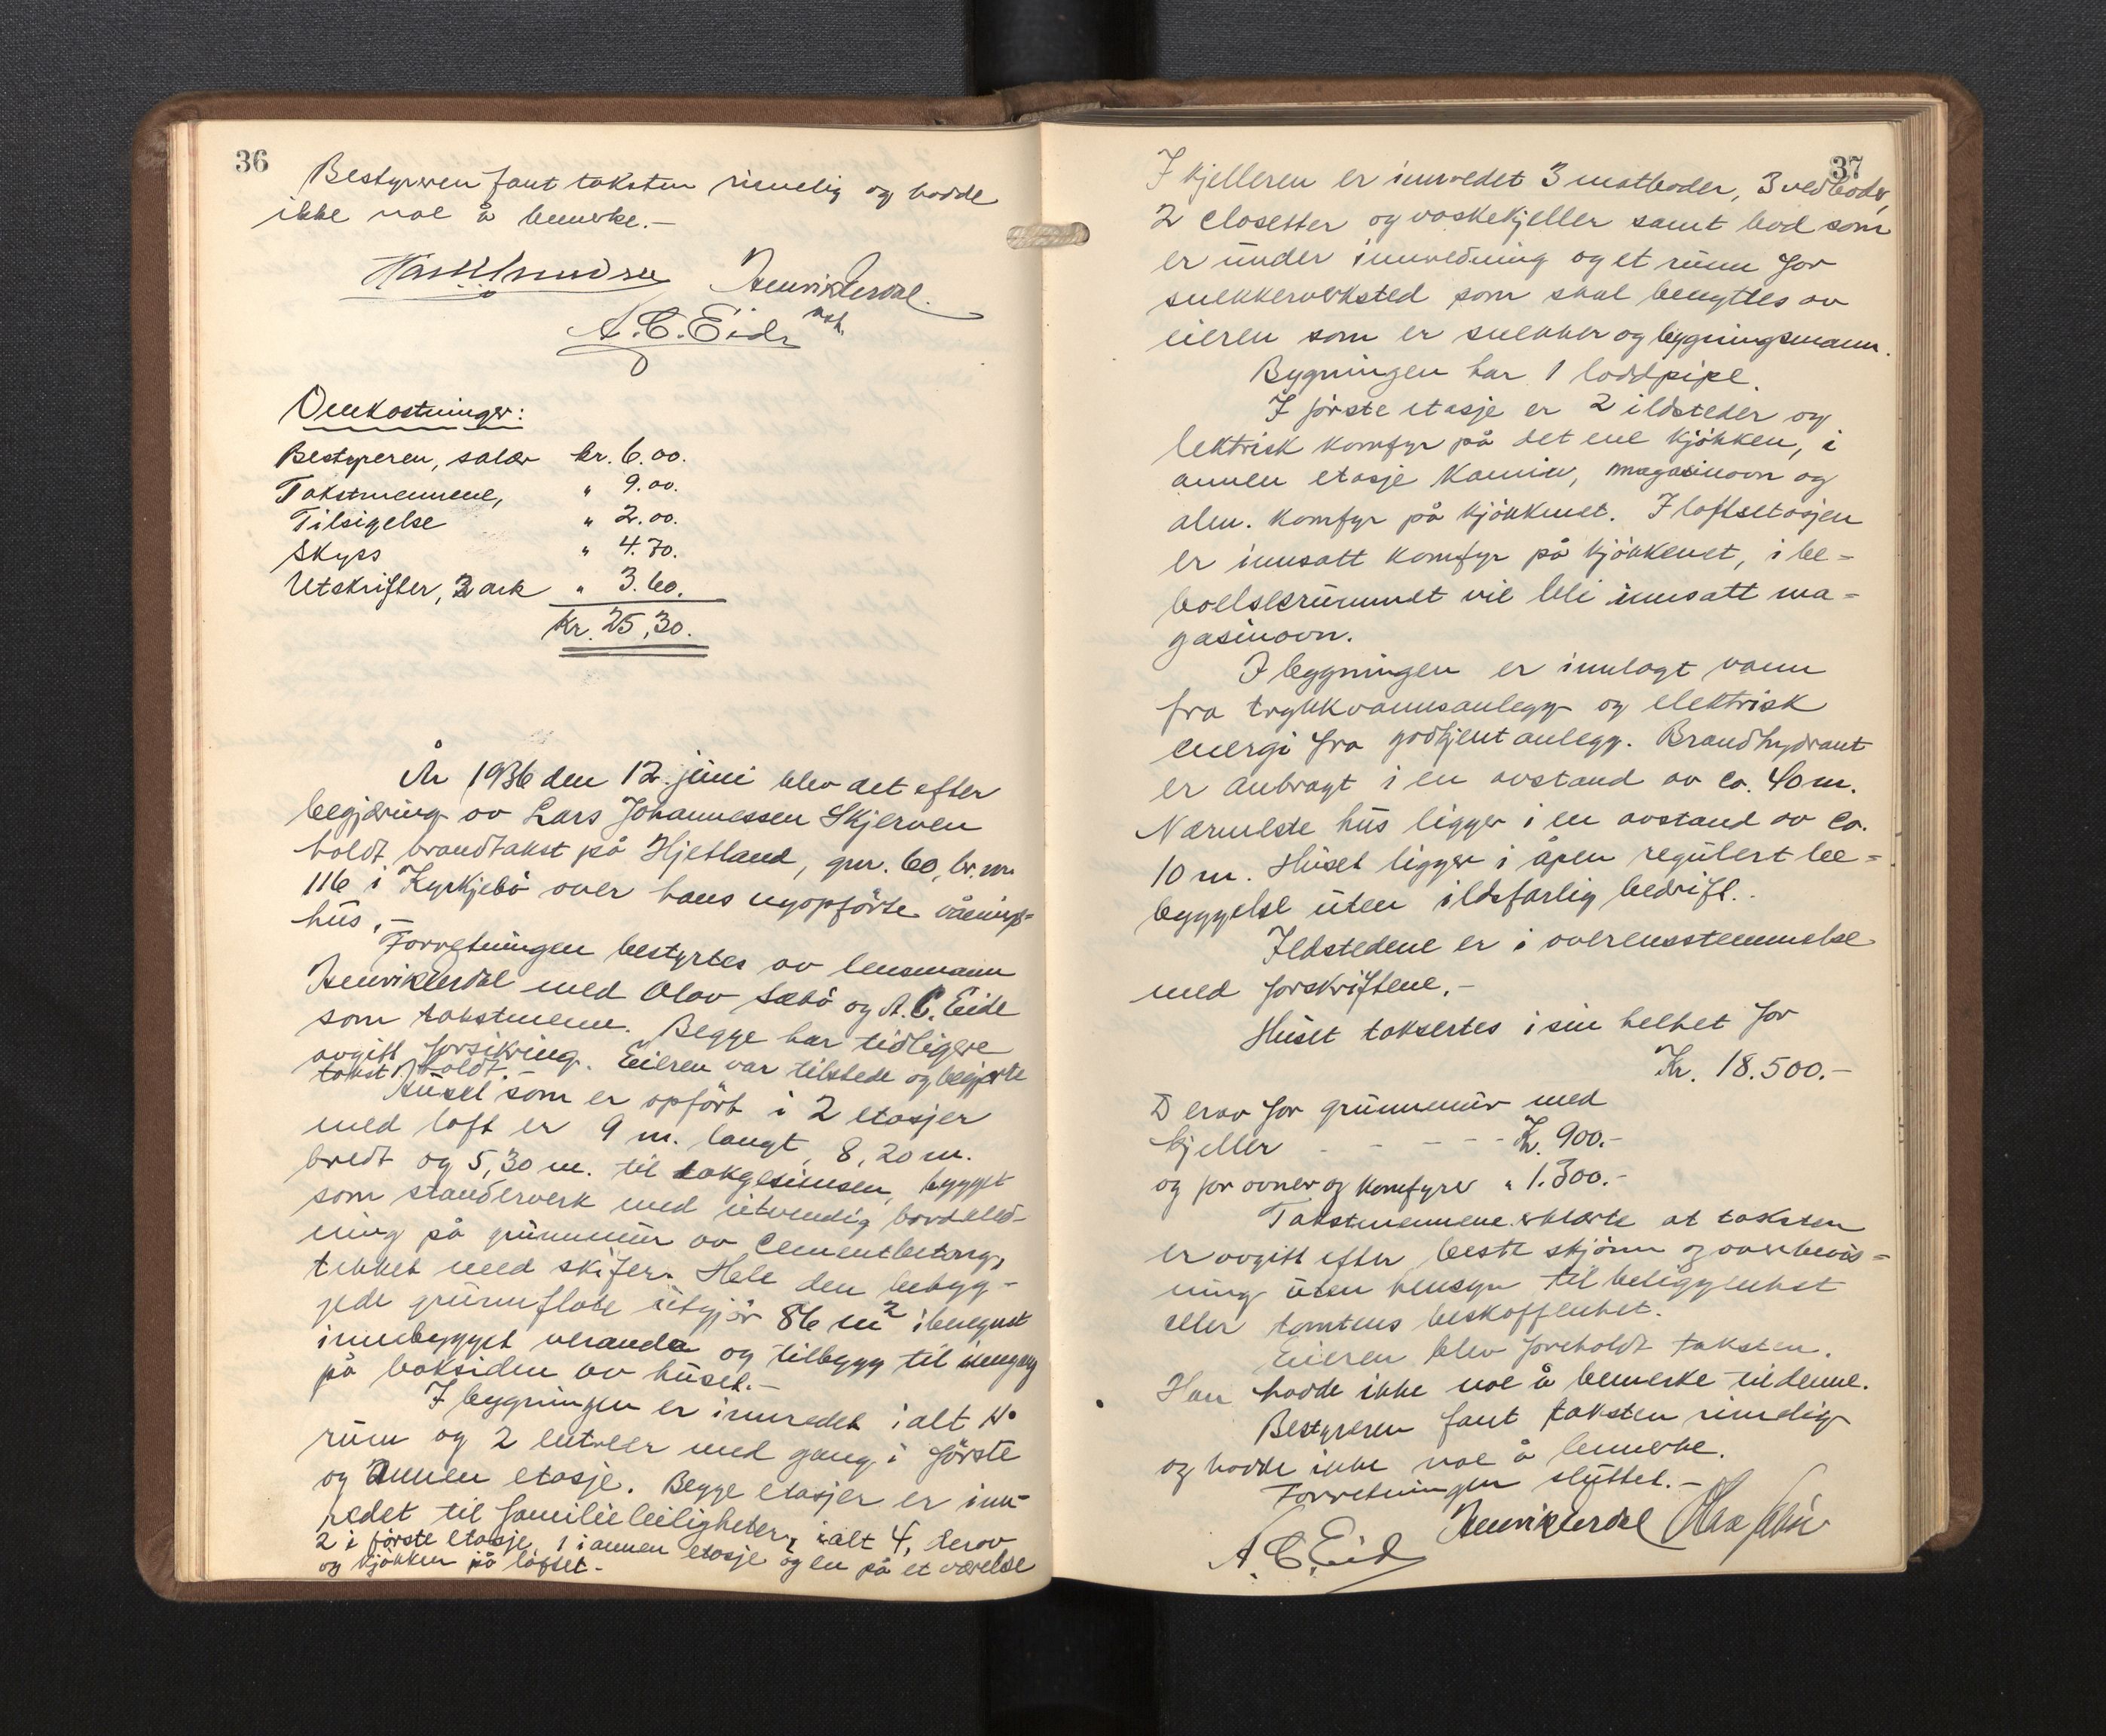 36
Bestyreren fant taksten rimelig og hadde
ikke noe å bemerke.—
A. C. Eide
Omkostninger:
Bestyreren, salær kr. 6.00.
Takstmennene, " 9.00.
Tilsigelse " 2.00.
Skyss " 4.70.
Utskrifter, 3 ark " 3.60.
Kr. 25,30.
År 1936 den 12. juni blev det efter
begjæring av Lars Johannessen Skjerven
holdt brandtakst på Hjetland, gnr. 60, br. nr.
116 i Kyrkjebö over hans nyopförte vånings-
hus.—
Forretningen bestyrtes av lensmann
Henrik Erdal med Olav Sæbö og A. C. Eide
som takstmenn. Begge har tidligere
avgitt forsikring. Eieren var tilstede og begjærte
takst holdt.—
Huset som er opfört i 2 etasjer
med loft er 9 m. langt, 8,20 m.
bredt og 5,30 m. til takgesimsen, bygget
som standerverk med utvendig bordkled-
ning på grunnmur av Cementbetong,
tekket med skifer. Hele den bebyg-
gede grunnflate utgjör 86 m² iberegnet
innebygget veranda og tilbygg til inngang
på baksiden av huset.—
I bygningen er innredet ialt 11
rum og 2 entreer med gang i förste
og annen etasje. Begge etasjer er inn-
redet til familieleiligheter, ialt 4, herav
2 i förste etasje, 1 i annen etasje og en på et værelse
og kjökken på loftet.-
37
I kjelleren er innredet 3 matboder, 3 vedboder,
2 closetter og vaskekjeller samt bod som
er under innredning og et rum for
snekkerverksted som skal benyttes av
eieren som er snekker og bygningsmann.
Bygningen har 1 loddpipe.
I förste etasje er 2 ildsteder og
lektrisk komfyr på det ene kjökken, i
annen etasje kamin, magasinovn og
alm. komfyr på kjökkenet. I loftsetasjen
er innsatt komfyr på kjökkenet, i be-
boelsesrummet vil bli innsatt ma-
gasinovn.
I bygningen er innlagt vann
fra trykkvannsanlegg og elektrisk
energi fra godkjent anlegg. Brandhydrant
er anbragt i en avstand av ca. 40 m.
Nærmeste hus ligger i en avstand av ca.
10 m. Huset ligger i åpen regulert be-
byggelse uten ildsfarlig bedrift.
Ildstedene er i overensstemmelse
med forskriftene.—
Huset taksertes i sin helhet for
Kr. 18.500.—
Derav for grunnmur med
kjeller - - - - - Kr. 900.-
og for ovner og komfyrer " 1.300.-
Takstmennene erklærte at taksten
er avgitt efter beste skjönn og overbevis-
ning uten hensyn til beliggenhet
eller tomtens beskaffenhet.
Eieren blev foreholdt taksten.
Han hadde ikke noe å bemerke til denne.
Bestyreren fant taksten rimelig
og hadde ikke noe å bemerke.
Forretningen sluttet.—
Henrik Erdal Olav Sæbö
A. C. Eide